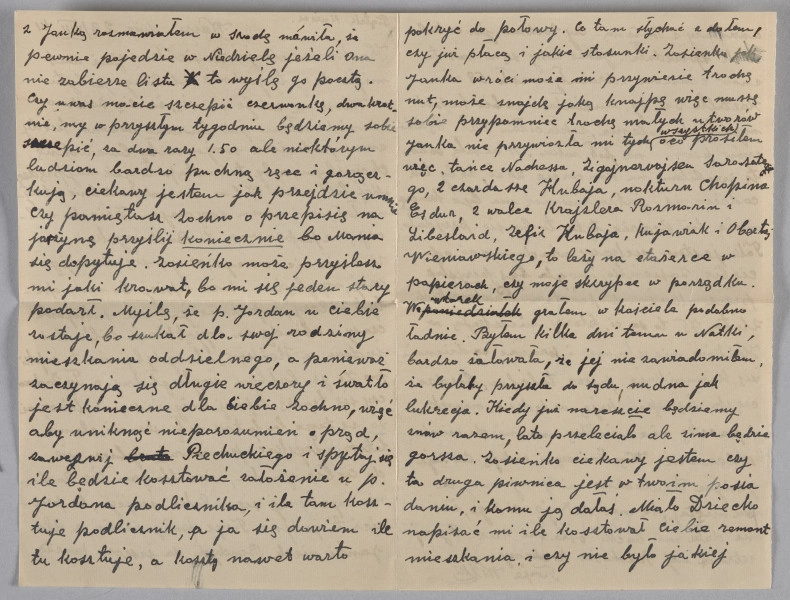 z Janką rozmawiałem w środę mówiła, że
pewnie pojedzie w Niedzielę jeżeli ona
nie zabierze listu to wyślę go pocztą.
Czy u was macie szczepić czerwonkę, dwukrot-
nie, my w przyszłym tygodniu będziemy sobie
szczepić, za dwa razy 1.50 ale niektórym
ludziom bardzo puchną ręce i gorącz-
kują, ciekawy jestem jak przejdzie u mnie
czy pamiętasz Zochno o przepisie na
jarzynę przyślij koniecznie bo Mania
się dopytuje. Zosieńko może przyślesz
mi jaki krawat, bo mi się jeden stary
podarł. Myślę, że p. Jordan u ciebie
zostaje, bo szukał dla swej rodziny
mieszkania oddzielnego, a ponieważ
zaczynają się długie wieczory i światło
jest konieczne dla Ciebie Zochno, więc
aby uniknąć nieporozumień o prąd,
zawezwij Piechuckiego i spytaj się
ile będzie kosztować założenie u p.
Jordana podlicznika, i ile tam kosz-
tuje podlicznik, a ja się dowiem ile
tu kosztuje, a koszty nawet warto
pokryć do połowy. Co tam słychać z dołem,
czy już płacą i jakie stosunki. Zosieńko
Janka wróci może mi przywiezie trochę
nut, może znajdę jaką knajpę więc muszę
sobie przypomnieć trochę małych utworów
wszystkich
Janka nie przywiozła mi tych o co prosiłem
więc. tańce Nachesa, Zigajnerwajsen Sarasate-
go, 2 czardasze Hubaja, nokturn Chopina
Es dur, 2 walce Krajslera Rozmarin i
Libeslaid, Zefir Hubaja, Kujawiak i Obertas
Wieniawskiego, to leży na etażerce w
papierach, czy moje skrzypce w porządku.
wtorek
We poniedziałek grałem w kościele podobno
ładnie. Byłem kilka dni temu u Natki,
bardzo żałowała, że jej nie zawiadomiłem,
że byłaby przyszła do sądu, nudna jak
lukrecja. Kiedy już nareszcie będziemy
znów razem, lato przeleciało ale zima będzie
gorsza. Zosieńko ciekawy jestem czy
ta druga piwnica jest w twoim posia
daniu, i komu ją dałaś. Miało Dziecko
napisać mi ile kosztował Ciebie remont
mieszkania. i czy nie było jakiej